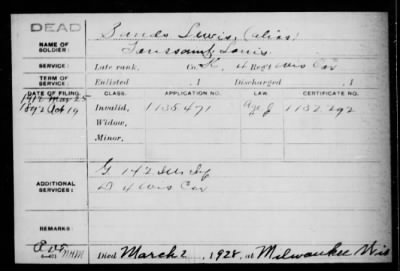 DEAD
NAME OF SOLDIER: Sands Lewis, (alias)
Toussaint, Louis
SERVICE: Late rank, Co. K, 4 Reg't Wis Cav
TERM OF SERVICE: Enlisted , 1 Discharged , 1
DATE OF FILING. CLASS. APPLICATION NO. LAW. CERTIFICATE NO.
1912 May 25
1892 Oct 19 Invalid, 1135471 1132292
Widow,
Minor,
ADDITIONAL SERVICES: G 142 Ills Inf
D 4 Wis Cav
REMARKS:
Died March 2, 1928, at Milwaukee Wis